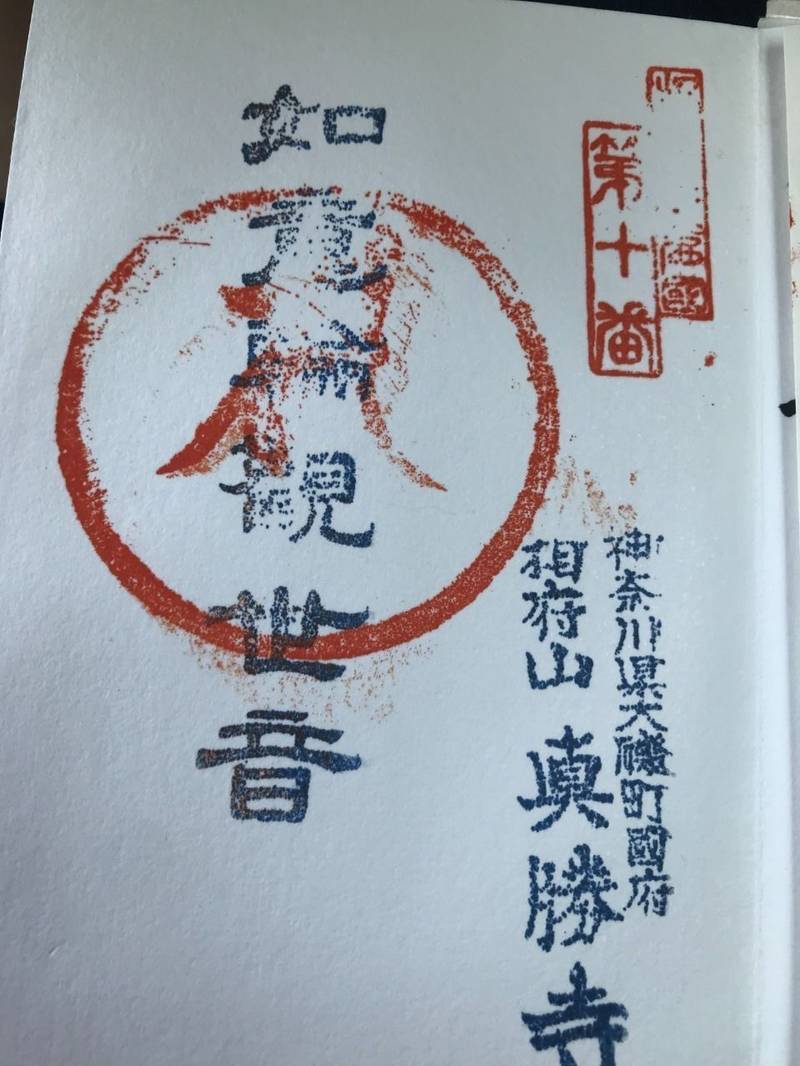 第十番
神奈川県大磯町國府
相府山 眞勝寺
如意輪観世音